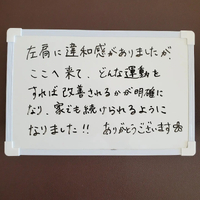 左肩に違和感がありましたが、
ここへ来て、どんな運動を
すれば改善されるかが明確に
なり、家でも続けられるように
なりました!! ありがとうございます